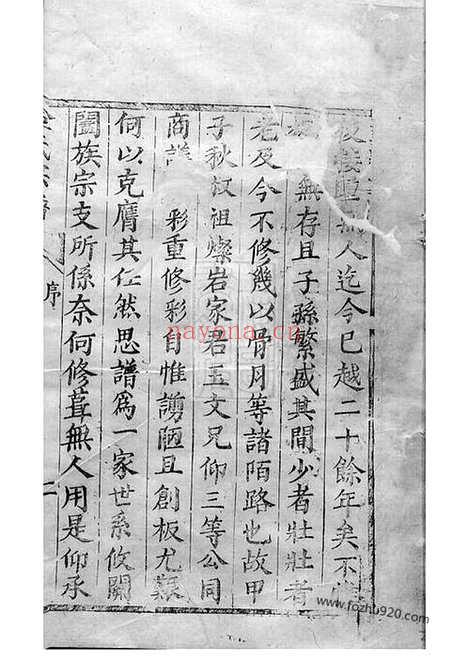 後接重無人迄今已越二十餘年矣不
無存且子孫繁盛其間少者壯壯者
老及今不修幾以骨月等諸陌路也故甲
子秋叔祖燦岩家君玉文兄仰三等公同
商議 彩重修彩自惟謭陋且創板尤艱
何以克膺其任然思譜爲一家世系攸關
闔族宗支所係奈何修葺無人用是仰承
氏宗譜
序
二
nayona.cn
www.fozhu920.com